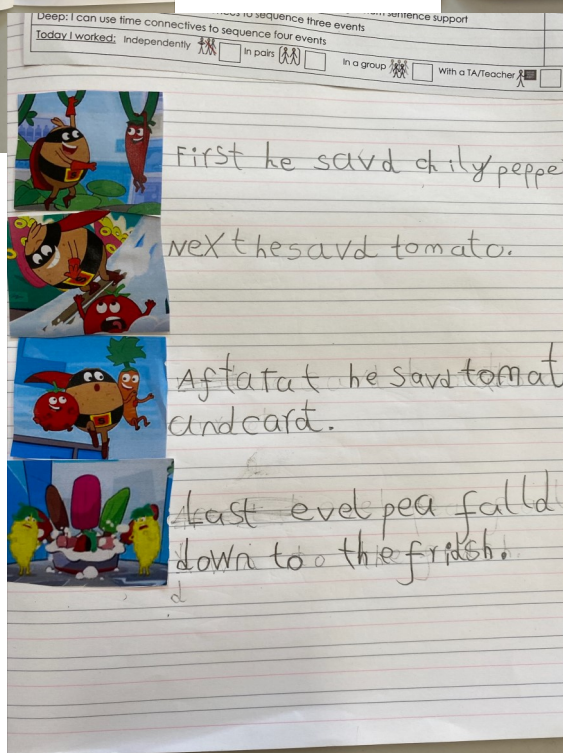 to sequence three events
sentence support
Deep: I can use time connectives to sequence four events
Today I worked: Independently In pairs In a group With a TA/Teacher
First he savd chily peppe
Next he savd tomato.
Aftarat he savd tomat
and cart.
Last evel pea falld
down to the fridsh.
d